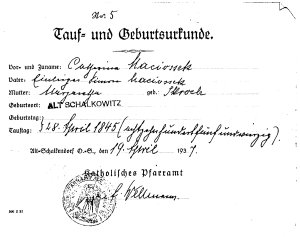 Nr. 5
Tauf- und Geburtsurkunde.
Vor- und Zuname: Catharina Maciossek
Vater: Simon Maciossek
Mutter: Margaretha geb. Mroch
Geburtsort: ALT SCHALKOWITZ
Geburtstag:
Tauftag: 28. April 1845 (achtzehnhundertfünfundvierzig).
Alt-Schalkendorf O.-S., den 19. April 1937
Katholisches Pfarramt